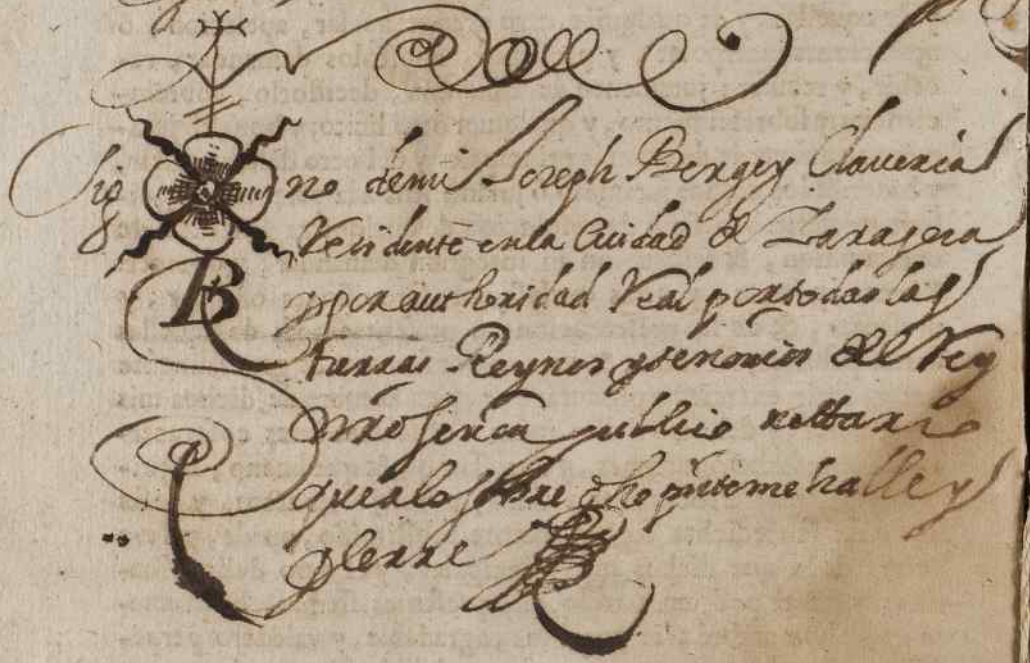 Sig no de mi Joseph Berges y Claveria
Residente en la Ciudad de Zaragoza
B
y por authoridad Real por todas las
tierras Reynos y señorios del Rey
nro señor publico Nottario
que a lo sobre dho pnte me halle y
cerre